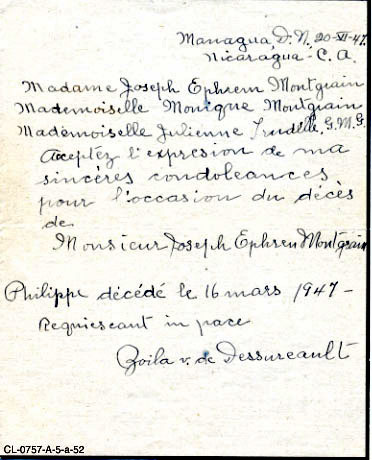 Managua, D. N. 20-VI-47.
Nicaragua - C. A.
Madame Joseph Ephrem Montgrain
Mademoiselle Monique Montgrain
Mademoiselle Julienne Trudelle, G.M.G.
Acceptez l'expresion de ma
sincères condoleances
pour l'occasion du décès
de
Monsieur Joseph Ephren Montgrain
Philippe décédé le 16 mars 1947-
Requiescant in pace
Zoila v. de Dessureault
CL-0757-A-5-a-52